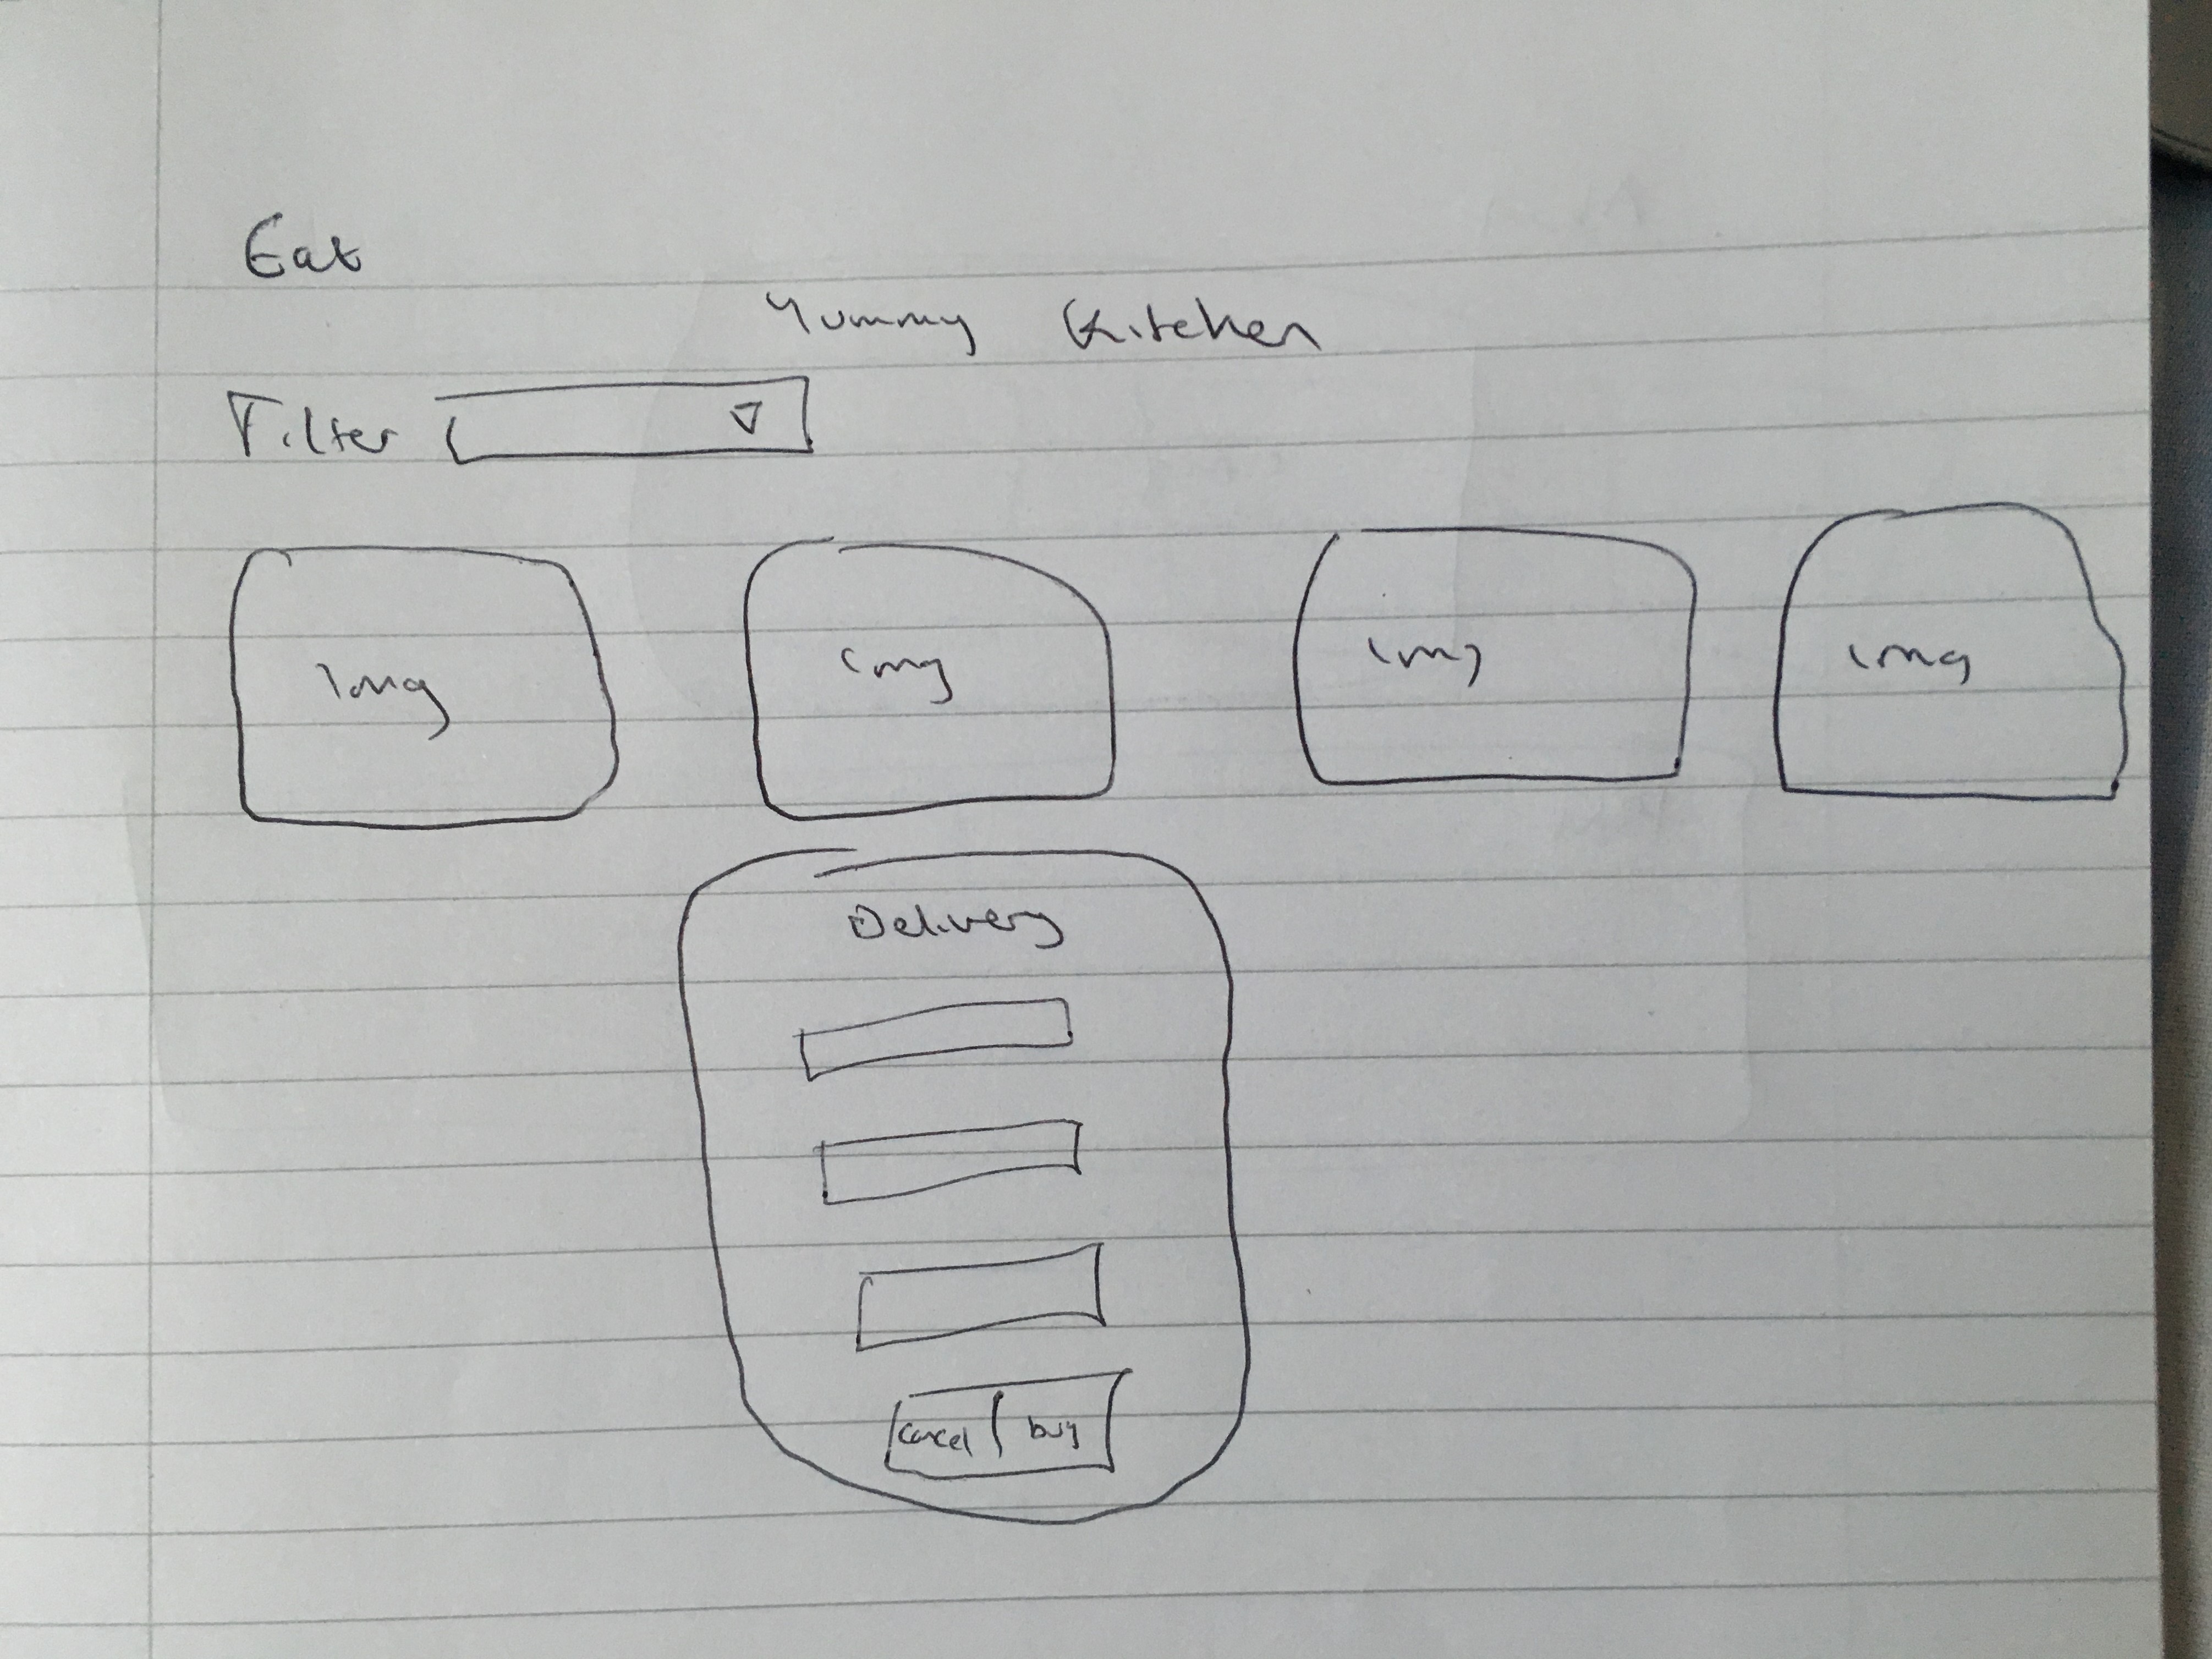 Eat
Yummy Kitchen
Filter
Img
img
img
img
Delivery
cancel buy